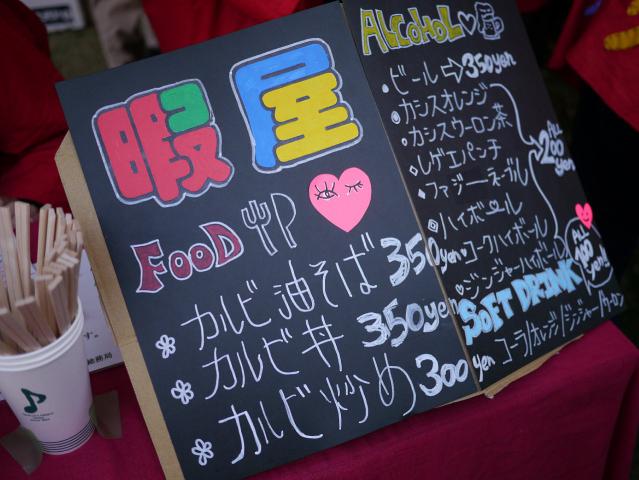 暇屋
FOOD
カルビ油そば 350yen
カルビ丼 350yen
カルビ炒め 300yen
ALCOHOL
・ビール⇨350yen
カシスオレンジ
・カシスウーロン茶
レゲエパンチ
・ファジーネーブル
ハイボール
コークハイボール
ジンジャーハイボール
ALL 200yen
SOFT DRINK
ALL 100yen!
コーラ/オレンジ/ジンジャー/ウーロン